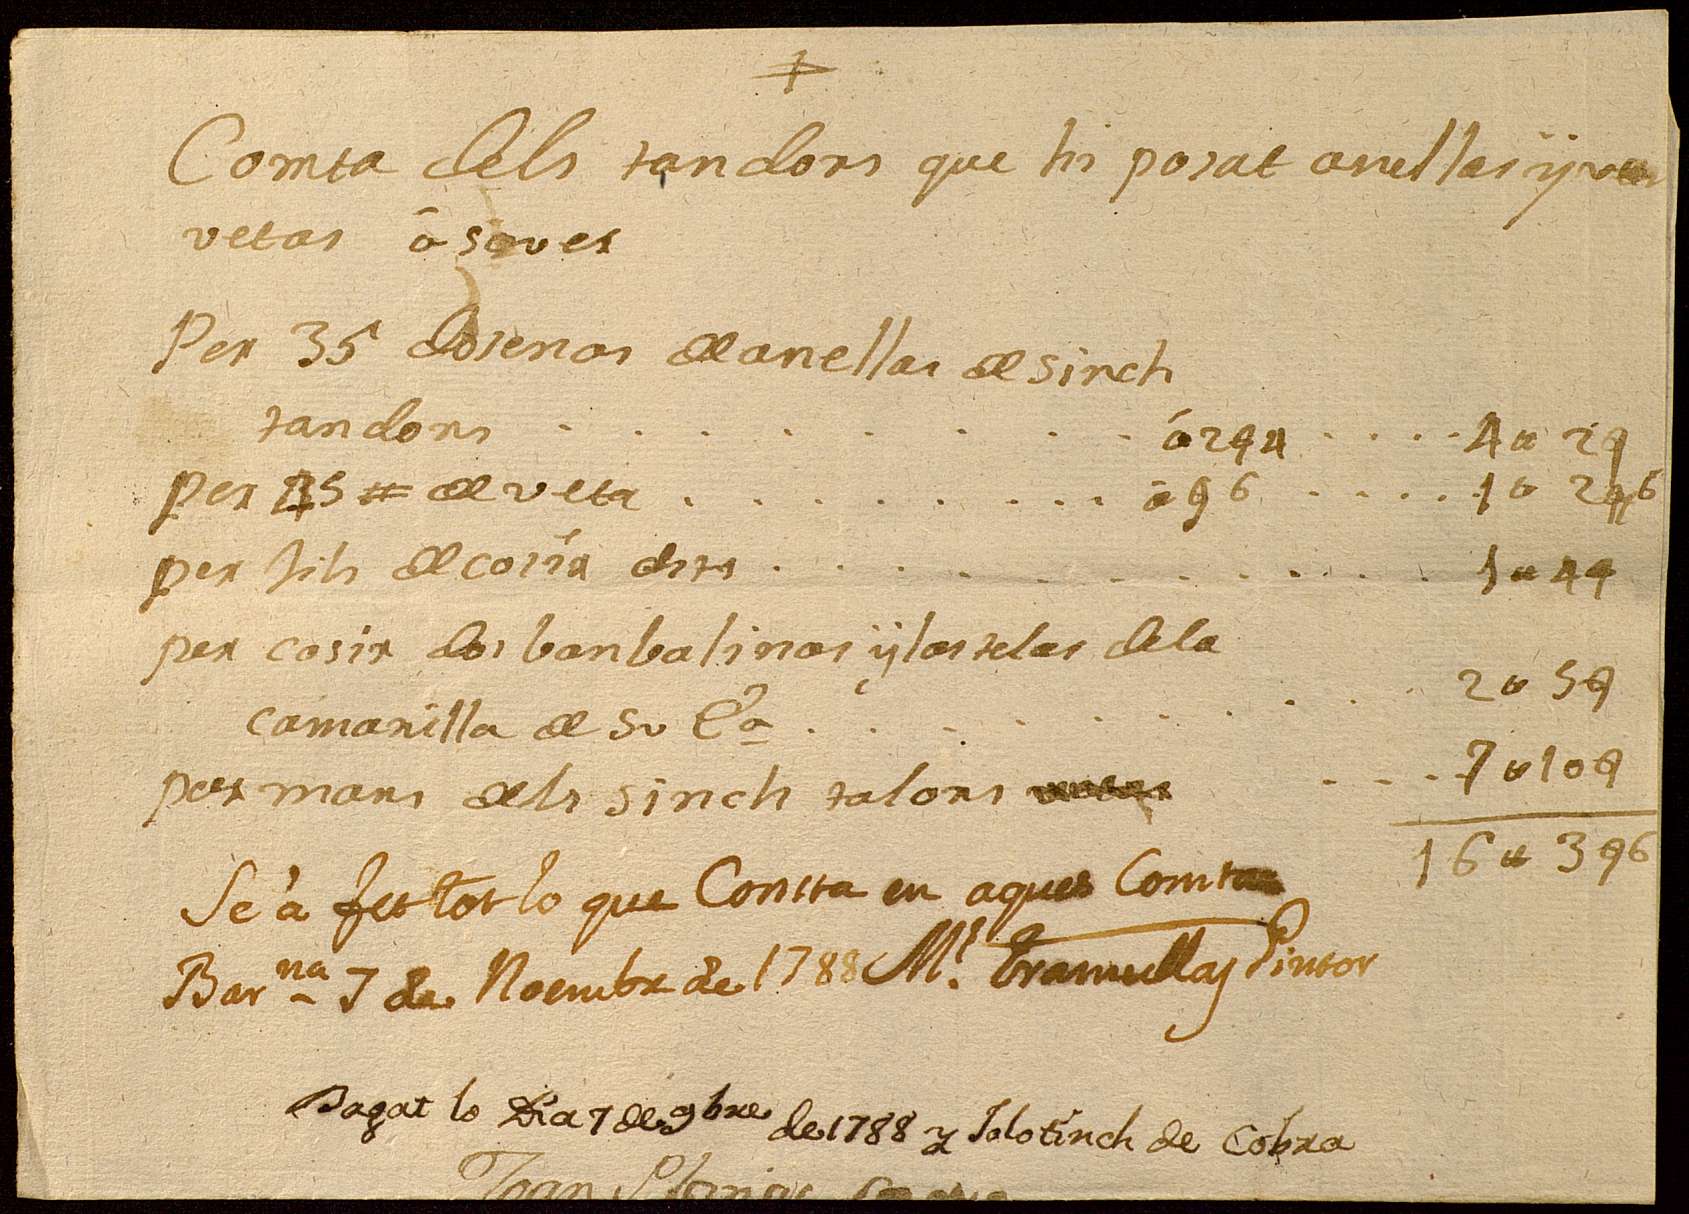 Comta dels tandors que hi posat anellas ÿ
vetas â saver
Per 35 dosenas de anellas de sinch
tandors . . . . . . . . . á 2 4 . . . . 4 ª 2
per 5 de veta . . . . . . . . . à 6 . . . . 1 ª 2 6
per fil de cosir dits . . . . . . . . . . . 1 ª 4
per cosir dos banbalinas ÿ las telas de la
camarilla de Su Eª . . . . . . . . . . 2 ª 5
per mans dels sinch talons . . . . 7 ª 10
16 ª 3 6
Se à fet tot lo que Consta en aques Comta
Barna 7 de Noembre de 1788 Ml. Tramullas Pintor
Pagat lo Dia 7 de 9bre de 1788 y Jo lo tinch de Cobra
Joan